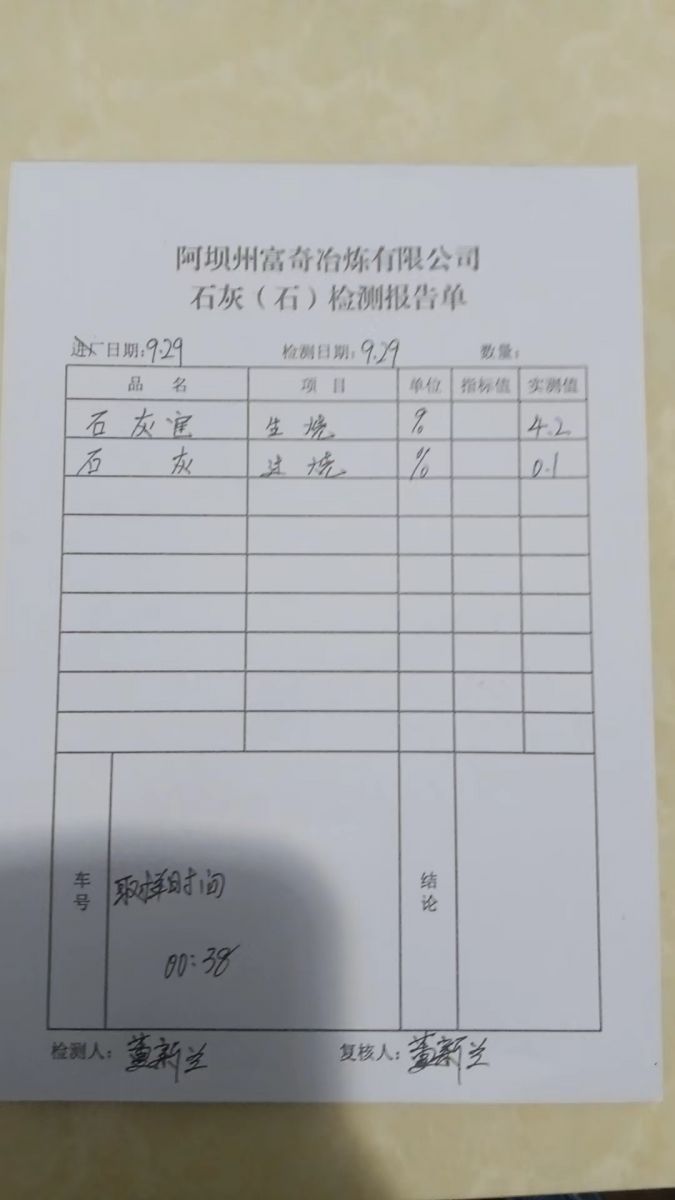 阿坝州富奇冶炼有限公司
石灰（石）检测报告单
进厂日期：9.29 检测日期：9.29 数量：
品 名 项 目 单位 指标值 实测值
石灰窑 生烧 % 4.2
石 灰 过烧 % 0.1
车号 取样时间 结论
00:38
检测人：董新兰 复核人：董新兰